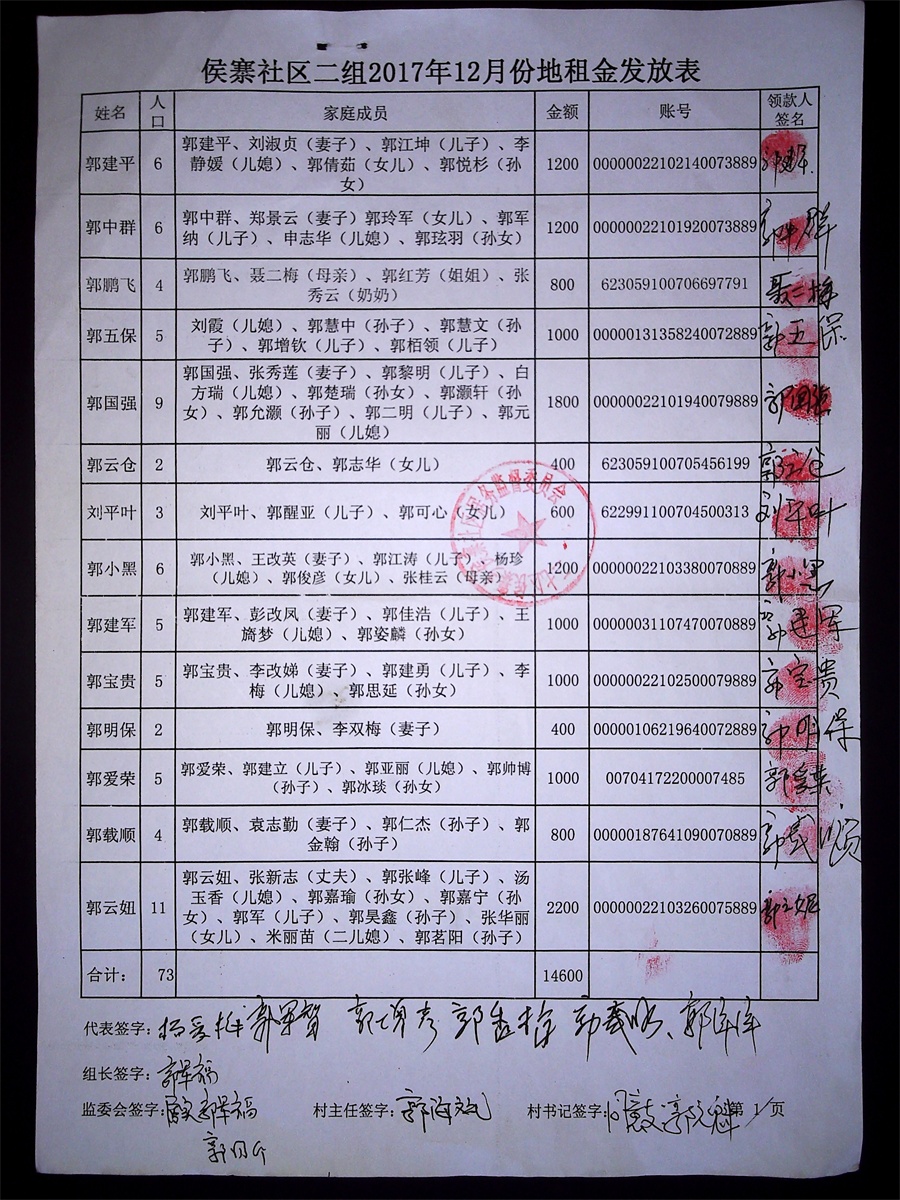 侯寨社区二组2017年12月份地租金发放表
姓名 人口 家庭成员 金额 账号 领款人签名
郭建平 6 郭建平、刘淑贞（妻子）、郭江坤（儿子）、李 1200 00000022102140073889
静媛（儿媳）、郭倩茹（女儿）、郭悦杉（孙
女）
郭中群 6 郭中群、郑景云（妻子）郭玲军（女儿）、郭军 1200 00000022101920073889 郭中群
纳（儿子）、申志华（儿媳）、郭玹羽（孙女）
郭鹏飞 4 郭鹏飞、聂二梅（母亲）、郭红芳（姐姐）、张 800 623059100706697791 聂二梅
秀云（奶奶）
郭五保 5 刘霞（儿媳）、郭慧中（孙子）、郭慧文（孙 1000 00000131358240072889 郭五保
子）、郭增钦（儿子）、郭栢领（儿子）
郭国强 9 郭国强、张秀莲（妻子）、郭黎明（儿子）、白 1800 00000022101940079889 郭国强
方瑞（儿媳）、郭楚瑞（孙女）、郭灏轩（孙
女）、郭允灏（孙子）、郭二明（儿子）、郭元
丽（儿媳）
郭云仓 2 郭云仓、郭志华（女儿） 400 623059100705456199 郭云仓
刘平叶 3 刘平叶、郭醒亚（儿子）、郭可心（女儿） 600 622991100704500313 刘平叶
郭小黑 6 郭小黑、王改英（妻子）、郭江涛（儿子）、杨珍 1200 00000022103380070889 郭小黑
（儿媳）、郭俊彦（女儿）、张桂云（母亲）
郭建军 5 郭建军、彭改凤（妻子）、郭佳浩（儿子）、王 1000 00000031107470070889 郭建军
旖梦（儿媳）、郭姿麟（孙女）
郭宝贵 5 郭宝贵、李改娣（妻子）、郭建勇（儿子）、李 1000 00000022102500079889 郭宝贵
梅（儿媳）、郭思延（孙女）
郭明保 2 郭明保、李双梅（妻子） 400 00000106219640072889 郭明保
郭爱荣 5 郭爱荣、郭建立（儿子）、郭亚丽（儿媳）、郭帅博 1000 00704172200007485 郭爱荣
（孙子）、郭冰琰（孙女）
郭载顺 4 郭载顺、袁志勤（妻子）、郭仁杰（孙子）、郭 800 00000187641090070889 郭载顺
金翰（孙子）
郭云妞 11 郭云妞、张新志（丈夫）、郭张峰（儿子）、汤 2200 00000022103260075889 郭云妞
玉香（儿媳）、郭嘉瑜（孙女）、郭嘉宁（孙
女）、郭军（儿子）、郭昊鑫（孙子）、张华丽
（女儿）、米丽苗（二儿媳）、郭茗阳（孙子）
合计： 73 14600
代表签字：
组长签字：
监委会签字： 村主任签字： 村书记签字： 第 1 页